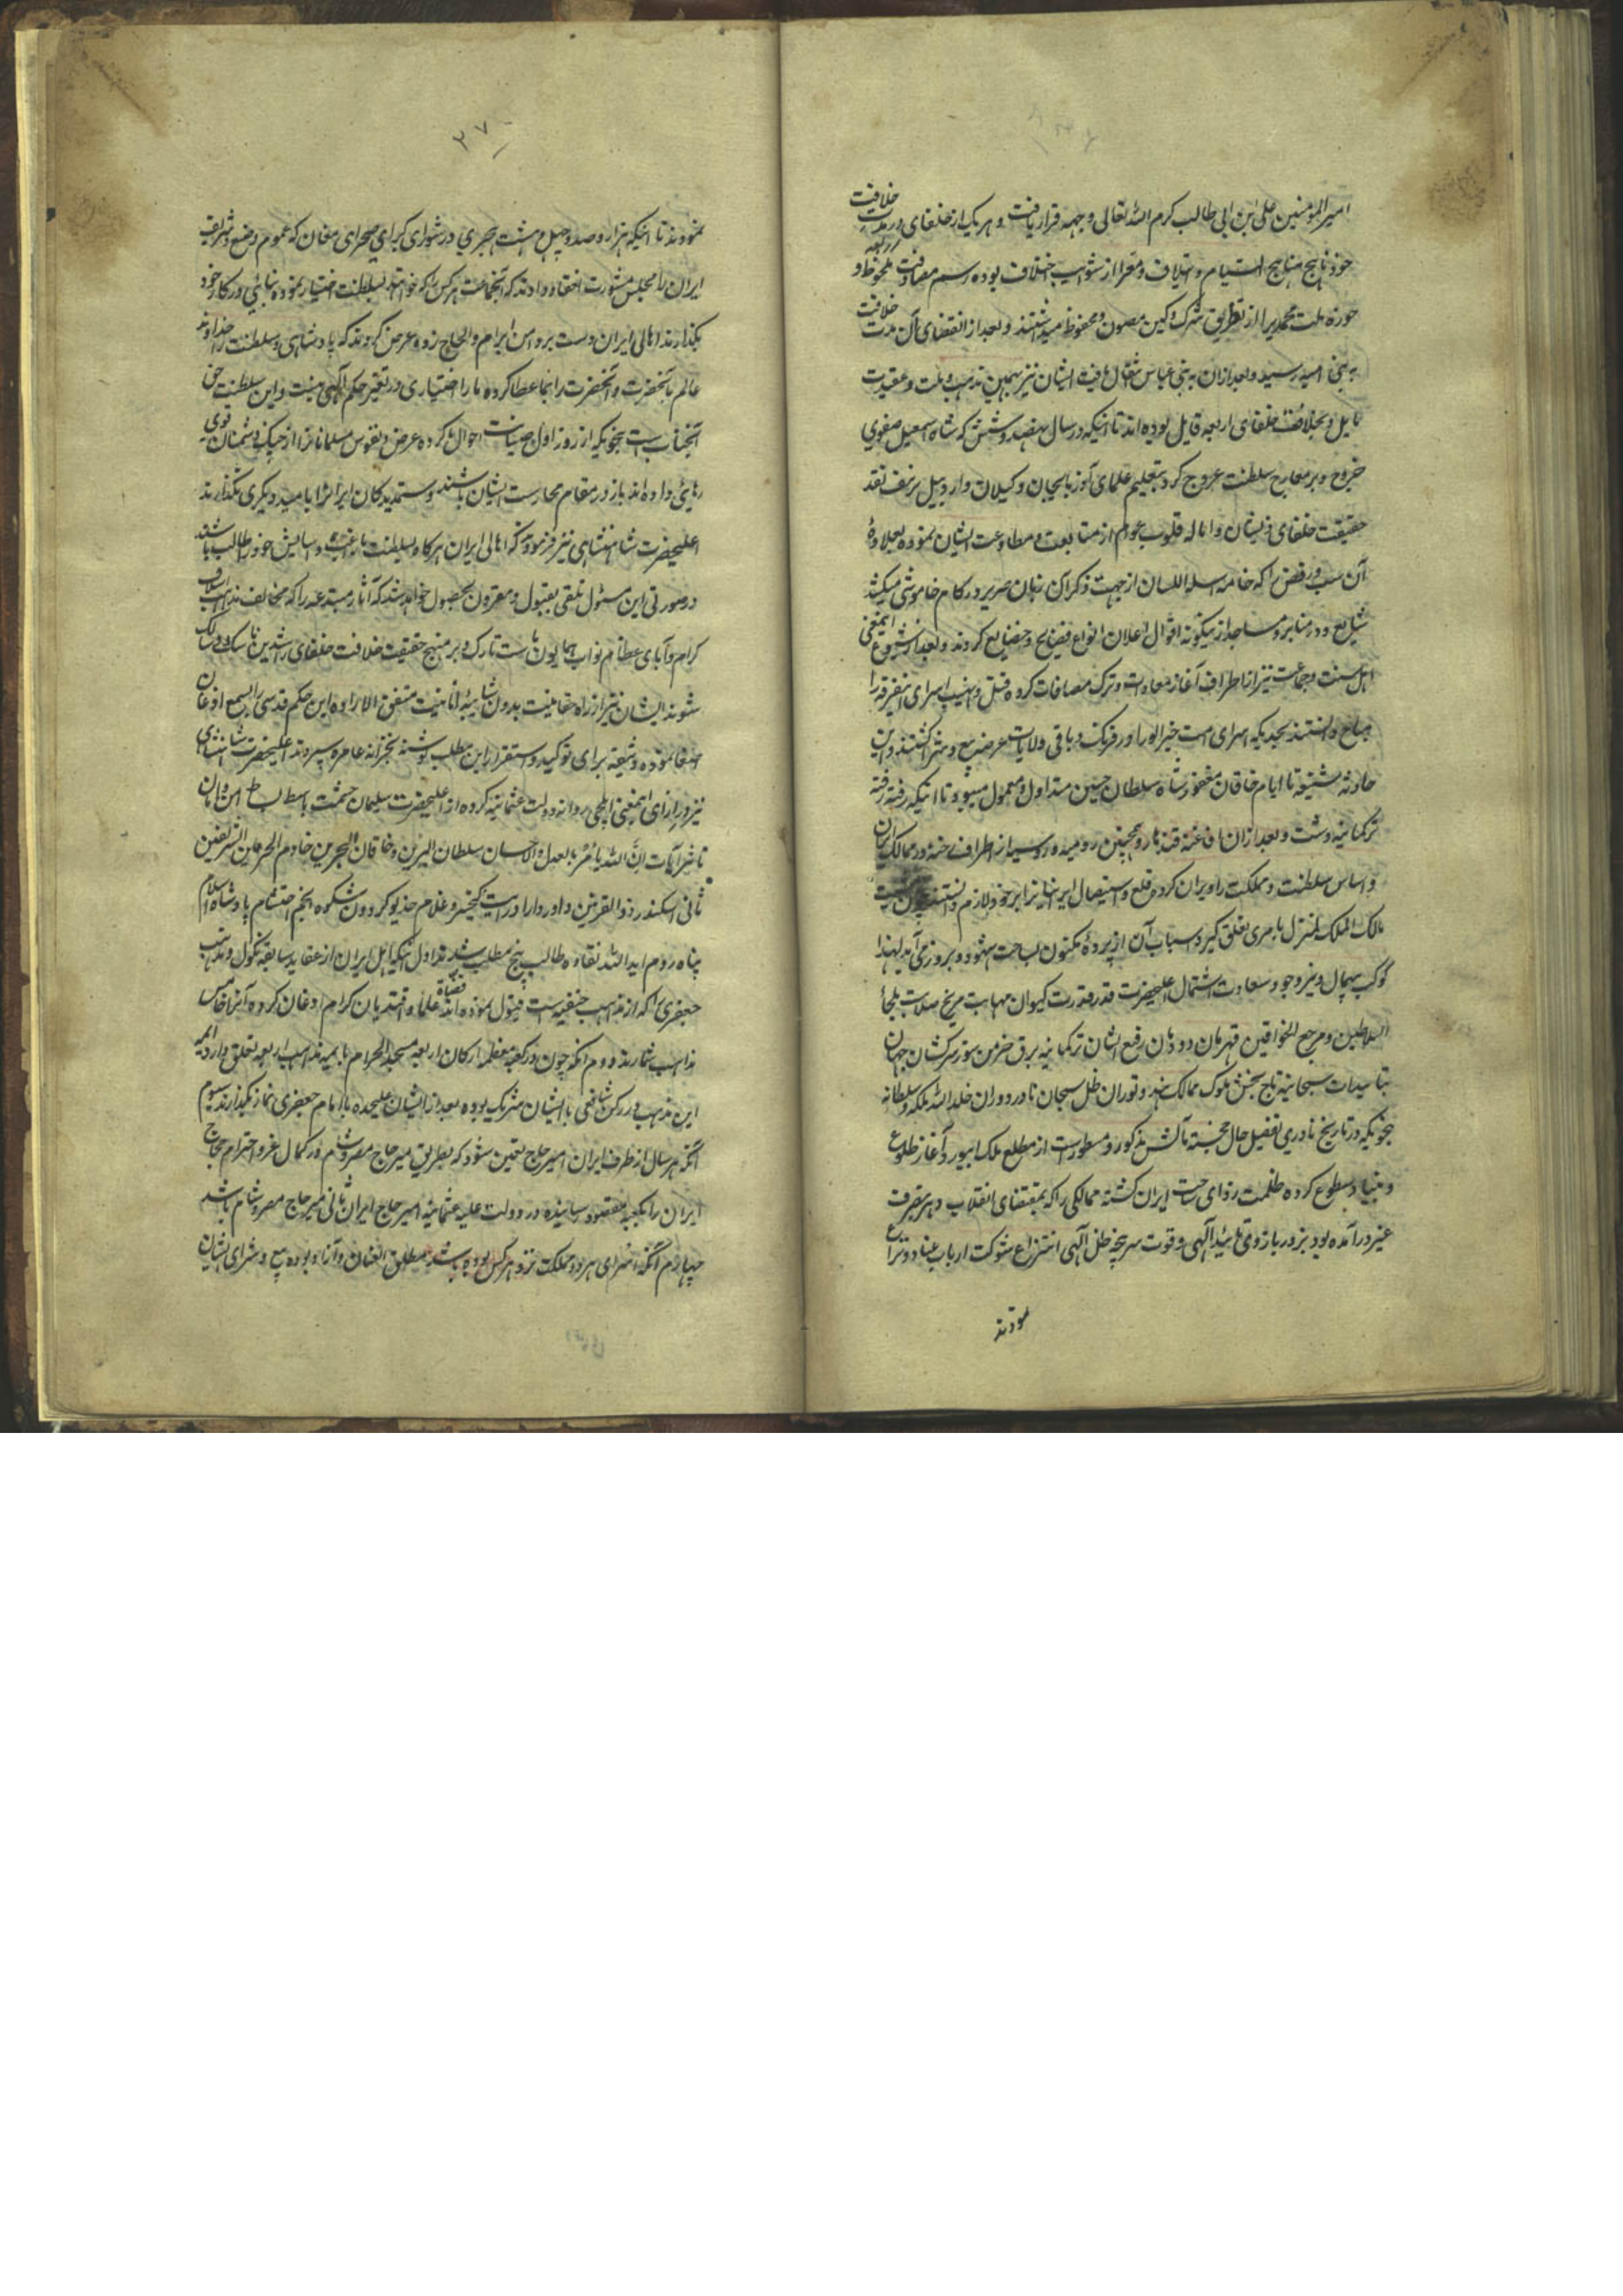 امیرالمومنین علی ابن ابی طالب کرم الله تعالی وجهه قرار یافت و هر یک از خلفای در مدت خلافت
خود ناهج مناهج التیام و ایتلاف و معرا از شوایب اختلاف بوده رسم مصادقت ملحوظ و
حوزه ملت محمدیرا از تطریق شرک و کین مصون و محفوظ میداشتند و بعد از انقضای آن مدت خلافت
به بنی امیه رسید و بعد ازان به بنی عباس انتقال یافت ایشان نیز بهمین مذهب و ملت و عقیدت
مایل و بخلافت خلفای اربعه قایل بوده اند تا اینکه در سال نهصد و شش که شاه اسمعیل صفوی
خروج و بر معارج سلطنت عروج کرد بتعلیم علمای آذربایجان و کیلان و اردبیل بزیف نقد
حقیقت خلفای ذیشان و اماله قلوب عوام از متابعت و مطاوعت ایشان نموده بعلاوهٔ
آن سب و رفض را که خامه سلسله اللسان از جهت ذکر آن زبان صریر در کام خاموشی میکشد
شایع و در منابر و مساجد از نیکونه اقوال اعلان انواع فضایح و فضایع کردند و بعد از شیوع اینمعنی
اهل سنت و جماعت نیز از اطراف آغاز معادات و ترک مصافات کرده قتل و نهب و اسرای اینفرقه را
مباح دانستند بحدیکه اسرای امت خیرالورا در فرنک و باقی ولایات معرض بیع و شرا کشتند و این
حادثه شنیعه تا ایام خاقان مغفور شاه سلطان حسین متداول و معمول میبود تا اینکه رفته رفته
ترکمانیه دشت و بعد ازان افاغنه قندهار و همچنین رومیه و روسیه از اطراف رخنه در ممالک ایران
و اساس سلطنت و مملکت را ویران کرده قلع و استیصال ایرانیانرا بر خود لازم دانستند چون مشیت
مالک الملک لم یزل بامری تعلق کیرد اسباب آن از پردهٔ مکنون بساحت شهود و بروز می آید لهذا
کوکب بیهمال و نیر وجود سعادت اشتمال اعلیحضرت قدر قدرت کیوان مهابت مریخ صلابت ملجأ
السلاطین و مرجع الخواقین قهرمان دودمان رفیع الشان ترکمانیه برق خرمن سوز سرکشان جهان
بتاییدات سبحانیه تاج بخش ملوک ممالک هند و توران ظل سبحان نادر دوران خلد الله ملکه و سلطانه
بنحویکه در تاریخ نادری تفصیل حال خجسته مآلش مذکور و مسطور است از مطلع ملک ابیورد آغاز طلوع
و بنیاد سطوع کرده ظلمت زدای ساحت ایران کشته ممالکی را که بمقتضای انقلاب دهر بتصرف
غیر در آمده بود بزور بازوی تایید آلهی و قوت سرپنجه ظل آلهی انتزاع شوکت ارباب عناد و نزاع
نمودند
۲۷۰
نمودند تا اینکه هزار و صد و چهل و هشت هجری در شورای کبرای صحرای مغان که عموم وضیع و شریف
ایران را مجلس مشورت انعقاد دادند که آنجماعت هر کس را که خواهند بسلطنت اختیار نموده بنائی در کار خود
بکذارند اهالی ایران دست بر دامن ابرام و الحاح زده عرض کردند که پادشاهی و سلطنت را خداوند
عالم بآنحضرت و آنحضرت را بما عطا کرده ما را اختیاری در تغیر حکم آلهی نیست و این سلطنت حق
آنجناب است بنحویکه از روز اول صیانت احوال ما کرده عرض و نفوس مسلمانانرا از چنک دشمنان قوی
رهائی داده اند باز در مقام محارست ایشان باشند و ستمدیدکان ایرانرا بامید دیکری نکذارند
اعلیحضرت شاهنشاهی نیز فرمودند که اهالی ایران هرکاه بسلطنت ما راغب و آسایش خود را طالب باشند
در صورتی این مسئول تلقی بقبول و مقرون بحصول خواهد شد که آثار مبتدعه را که مخالف مذهب اسلاف
کرام و آبای عظام نواب همایون ماست تارک و بر منهج حقیقت خلافت خلفای راشدین ناسک و سالک
شوند ایشان نیز از راه حقانیت بدون شایبهٔ انانیت متفق الاراده این حکم قدسی را بسمع اذعان
اصغا نموده وثیقه برای توکید و استقرار این مطلب نوشته بخزانه عامره سپردند اعلیحضرت شاهنشاهی
نیز در ازای اینمعنی ایلچی روانه دولت عثمانیه کرده از اعلیحضرت سلیمان حشمت باسط بساط امن و امان
ناشر آیات انّ الله یأمر بالعدل و الاحسان سلطان البرین و خاقان البحرین خادم الحرمین الشریفین
ثانی اسکندر ذوالقرنین داور دارا درایت کیخسرو غلام خدیو کردون شکوه انجم احتشام پادشاه اسلام
پناه روم اید الله نقاوه طالب پنج مطلب شدند اول اینکه اهل ایران از عقاید سابقه نکول و مذهب
جعفری را که از مذاهب حقه است قبول نموده اند قضاة و علما و افندیان کرام اذعان کرده آنرا خامس
مذاهب شمارند دوم آنکه چون در کعبه معظمه ارکان اربعه مسجد الحرام بایمه مذاهب اربعه تعلق دارد ایمه
این مذهب در رکن شافعی با ایشان شریک بوده بعد از ایشان علیحده با امام جعفری نماز بکذارند سیوم
آنکه هر سال از طرف ایران امیر حاج تعیین شود که بطریق میر حاج مصر و شام در کمال عز و احترام حجاج
ایران را بکعبه مقصود رسانیده در دولت علیه عثمانیه امیر حاج ایران ثانی میر حاج مصر و شام باشد
چهارم آنکه اسرای هر دو مملکت نزد هر کس بوده باشد مطلق العنان و آزاد بوده بیع و شرای ایشان